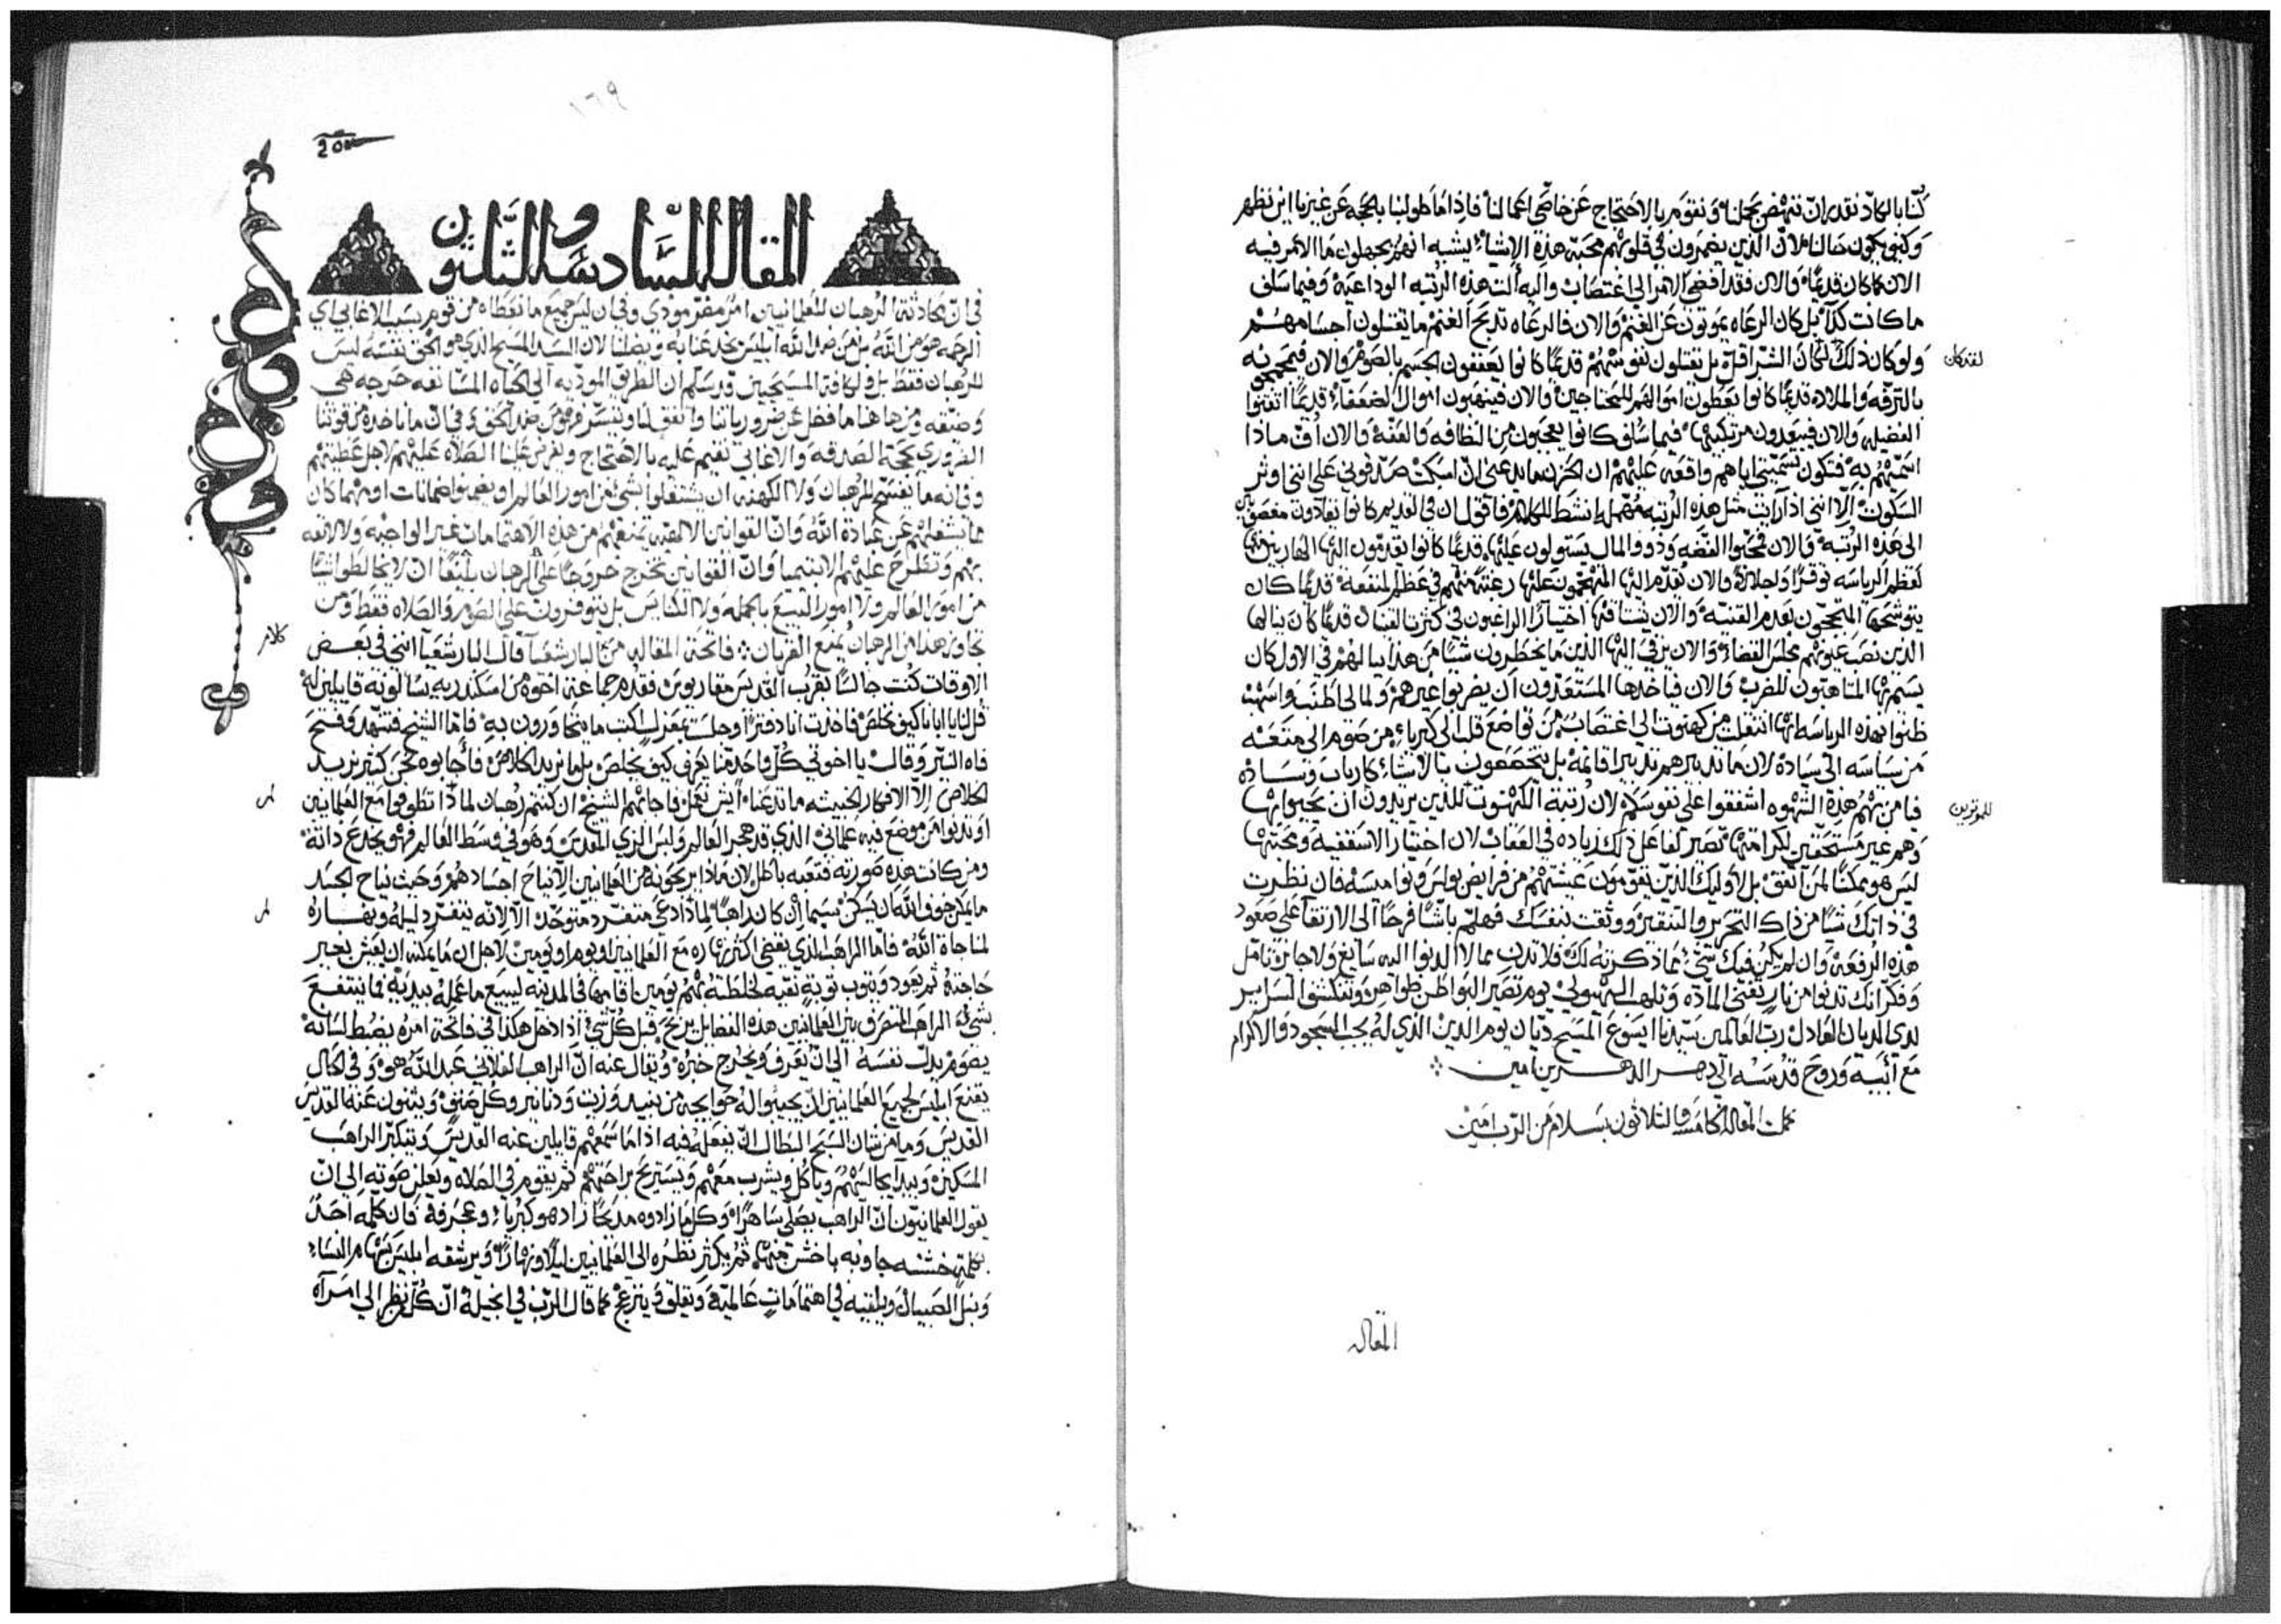 كنا بالكاد نقدر ان ننهض بحملنا ونقوم بالاحتجاج عن خاصي اعمالنا فاذا ما طولبنا بالحجه عن غيرنا اين نظهر
وكيف يكون حالنا لان الذين يضمرون في قلوبهم محبة هذه الاشياء يشبه انهم يجهلون ما الامر فيه
الان كما كان قديمًا والان فقد افضى الامر الي اغتصاب واليه الت هذه الرتبه الوداعية وفيما سلف
ما كانت كذا بل كان الرعاه يموتون عن الغنم والان فالرعاه تذبح الغنم ما يقتلون اجسامهم
ولو كان ذلك لكان الشر اقل بل يقتلون نفوسهم قديمًا كانوا يعففون الجسم بالصوم والان
لقد كان
بالترفه والملاذ قديمًا كانوا يعطون اموالهم للمحتاجين والان فينهبون اموال الضعفاء قديمًا اقتنوا
الفضيله والان فيبعدون مرتكبيها فيما سلف كانوا يعجبون من النظافه والعفة والان اف ماذا
اسميهم به فتكون تسميتي اياهم واقعه عليهم ان الحزن ما يدعني ان اسكت علي انني اوثر
السكوت الا انني اذا رايت مثل هذه الرتبه مهمله انشط للكلام فاقول ان في القديم كانوا يقادون مغصوبين
الي هذه الرتبه والان فمحبوا الفضه وذووا المال يستولون عليها قديمًا كانوا يقدمون اليها الهاربين منها
لعظم الرياسه توقرًا واجلالا والان تقدم اليها المتهجمون عليها رغبة منهم في عظم المنفعه قديمًا كان
يتوشحها المتبجحون بعدم القنيه والان يشتاقها اختيارًا الراغبون في كثرت القنيان قديمًا كان ينالها
الذين نصب عيونهم مجلس القضاء والان يرقي اليها الذين ما يخطرون شيًا من هذا ببالهم في الاول كان
يتسمها المتاهبون للضرب والان فياخذها المستعدون ان يضربوا غيرهم ولما لي اطنب واسهب
ظنوا بهذه الرياسه انها انتقلت من كهنوت الي اغتصاب من تواضع قلب الي كبرياء من صوم الي متعه
من سياسه الي سياده لان ما تدبيرهم تدبير اقامة بل يتحققون بالاشياء كارباب وساده
فيا من بهم هذه الشهوه اشفقوا علي نفوسكم لان رتبة الكهنوت للذين يريدون ان يحبوا بها
للموثرين
وهم غير مستحقين لكرامتها تصير لفاعل ذلك زياده في العقاب لان اختيار الاسقفيه ومحبتها
ليس هو ممكنًا لمن اتفق بل لاوليك الذين يقومون عيشتهم من فرايض بولس ونواميسه فان نظرت
في ذاتك شيًا من ذاك التحرير والتنقير ووثقت بنفسك فهلم باشًا فرحًا الي الارتقا علي صعود
هذه الرفعه وان لم يكن فيك شي مما ذكرته لك فلا تدن مما لا الدنوا اليه سايغ ولا جايز تامل
وفكر انك تدنوا من نار تفني الماده وتلهب الهيولي يوم تصير البواطن ظواهر وتنكشف السراير
لدي الديان العادل رب العالمين سيدنا ايسوع المسيح ديان يوم الدين الذي له يجب السجود والاكرام
مع ابيه وروح قدسه الي دهر الداهرين امين
كملت المقاله الخامسه والثلاثون بسلام من الرب امين
المقاله
١٦٩
المقاله السادسه والثلثون
في ان محادثة الرهبان للعلمانيين امر مضر موذي وفي ان ليس جميع ما نعطاه من قوم بسبب الاغابي اي
الرحمه هو من الله بل من ضد الله ابليس يخدعنا به ويضلنا لان السيد المسيح الذي هو الحق نفسه ليس
للرهبان فقط بل ولكافة المسيحيين قد رسم ان الطريق الموديه الي الحياه المستانفه حرجه هي
وضيقه ومن هاهنا ما فضل عن ضرورياتنا وانفق لنا وتيسر فهو من ضد الحق وفي ان ما ناخذه من قوتنا
الضروري بحجة الصدقه والاغابي نقيم عليه بالاحتجاج ويفرض علينا الصلاه عليهم لاجل عطيتهم
وفي انه ما يفسح للرهبان ولا الكهنه ان يشتغلوا بشي من امور العالم او يضمنوا ضمانات او مهما كان
مما يشغلهم عن عبادة الله وان القوانين الالهيه تمنعهم من هذه الاهتمامات غير الواجبه ولا اللايقه
بهم وتطرح عليهم الابيتيميا وان القوانين تخرج حروجًا علي الرهبان بليغًا ان لا يخالطوا شيًا
من امور العالم ولا امور البيع بالجمله ولا الكنايس بل يتوفرون علي الصوم والصلاه فقط ومن
تجاوز هذا من الرهبان يمنع القربان فاتحة المقاله من البار شعيا قال البار شعيا انني في بعض
كلام
الاوقات كنت جالسًا بقرب القديس مقاريوس فقدم جماعة اخوه من اسكندريه يسالونه قايلين له
قل لنا يا ابانا كيف نخلص فاخذت انا دفترًا وجلست بمعزل اكتب ما يتحاورون به فاما الشيخ فتنهد وفتح
فاه النير وقال يا اخوتي كل واحد منا يعرف كيف يخلص بل ما نريد الخلاص فاجابوه نحن كثير نريد
الخلاص الا الافكار الخبيثه ما تدعنا ايش نعمل فاجابهم الشيخ ان كنتم رهبان لماذا تطوفوا مع العلمانيين
او تدنوا من موضع فيه علماني الذي قد هجر العالم ولبس الزي المقدس وهو في وسط العالم فهو يخدع ذاته
ومن كانت هذه صورته فتعبه باطل لان ماذا يربحونه من العلمانيين الا نياح اجسادهم وحيث نياح الجسد
ما يمكن خوف الله ان يسكن سيما ان كان راهبًا لماذا دعي متفرد متوحد الا لانه ينفرد ليله ونهاره
لمناجاة الله فاما الراهب الذي يقضي اكثر نهاره مع العلمانيين او يوم او يومين لاجل ان ما يمكنه ان يعيش بغير
حاجته ثم يعود ويتوب توبة نقيه لخلطته بهم يومين اقامها في المدينه ليبيع ما عمله بيديه فما ينتفع
بشي الراهب المتصرف بين العلمانيين هذه الفضايل يربح قبل كل شي اذا دخل هكذا في فاتحة امره يضبط لسانه
يصوم يذل نفسه الي ان يعرف ويخرج خبره ويقال عنه ان الراهب الفلاني عبد الله هو وفي الحال
يقنع ابليس لجميع العلمانيين ان يجيبوا له حوايجه من نبيد وزيت ودنانير وكل صنف ويثنون عنه القديس
القديس وما من شان السبح البطال ان يفعله فيه اذا ما سمعهم قايلين عنه القديس ويتكبر الراهب
المسكين ويبدا يجالسهم وياكل ويشرب معهم ويستريح براحتهم ثم يقوم في الصلاه ويعلن صوته الي ان
يقول العلمانيون ان الراهب يصلي ساهرًا وكلما زادوه مديحًا زاد هو كبرياء وعجرفة فان كلمه احد
بكلمة خشنه جاوبه باخشن منها ثم يكثر نظره الي العلمانيين ليلًا ونهارًا ويرشقه ابليس بسهام النساء
ونبل الصبيان ويلقيه في اهتمامات عالمية ويقلق وينزعج كما قال الرب في انجيله ان كل من نظر الي امراه